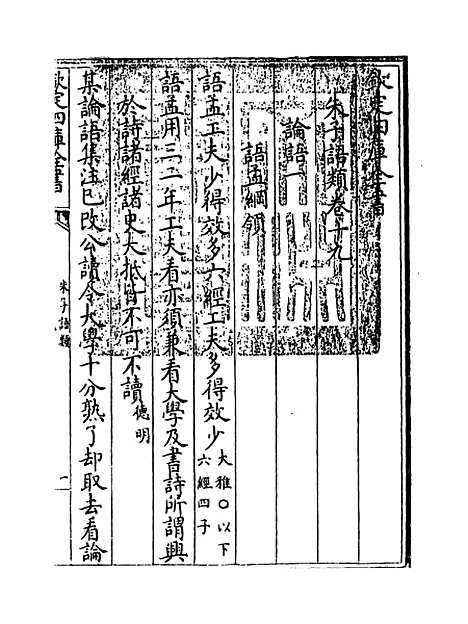 欽定四庫全書
朱子語類卷十九
論語一
語孟綱領
語孟工夫少得效多六經工夫多得效少大雅○以下六經四子
語孟用三二年工夫看亦須兼看大學及書詩所謂興
於詩諸經諸史大抵皆不可不讀德明
某論語集注已改公讀令大學十分熟了却取去看論
欽定四庫全書
朱子語類
一